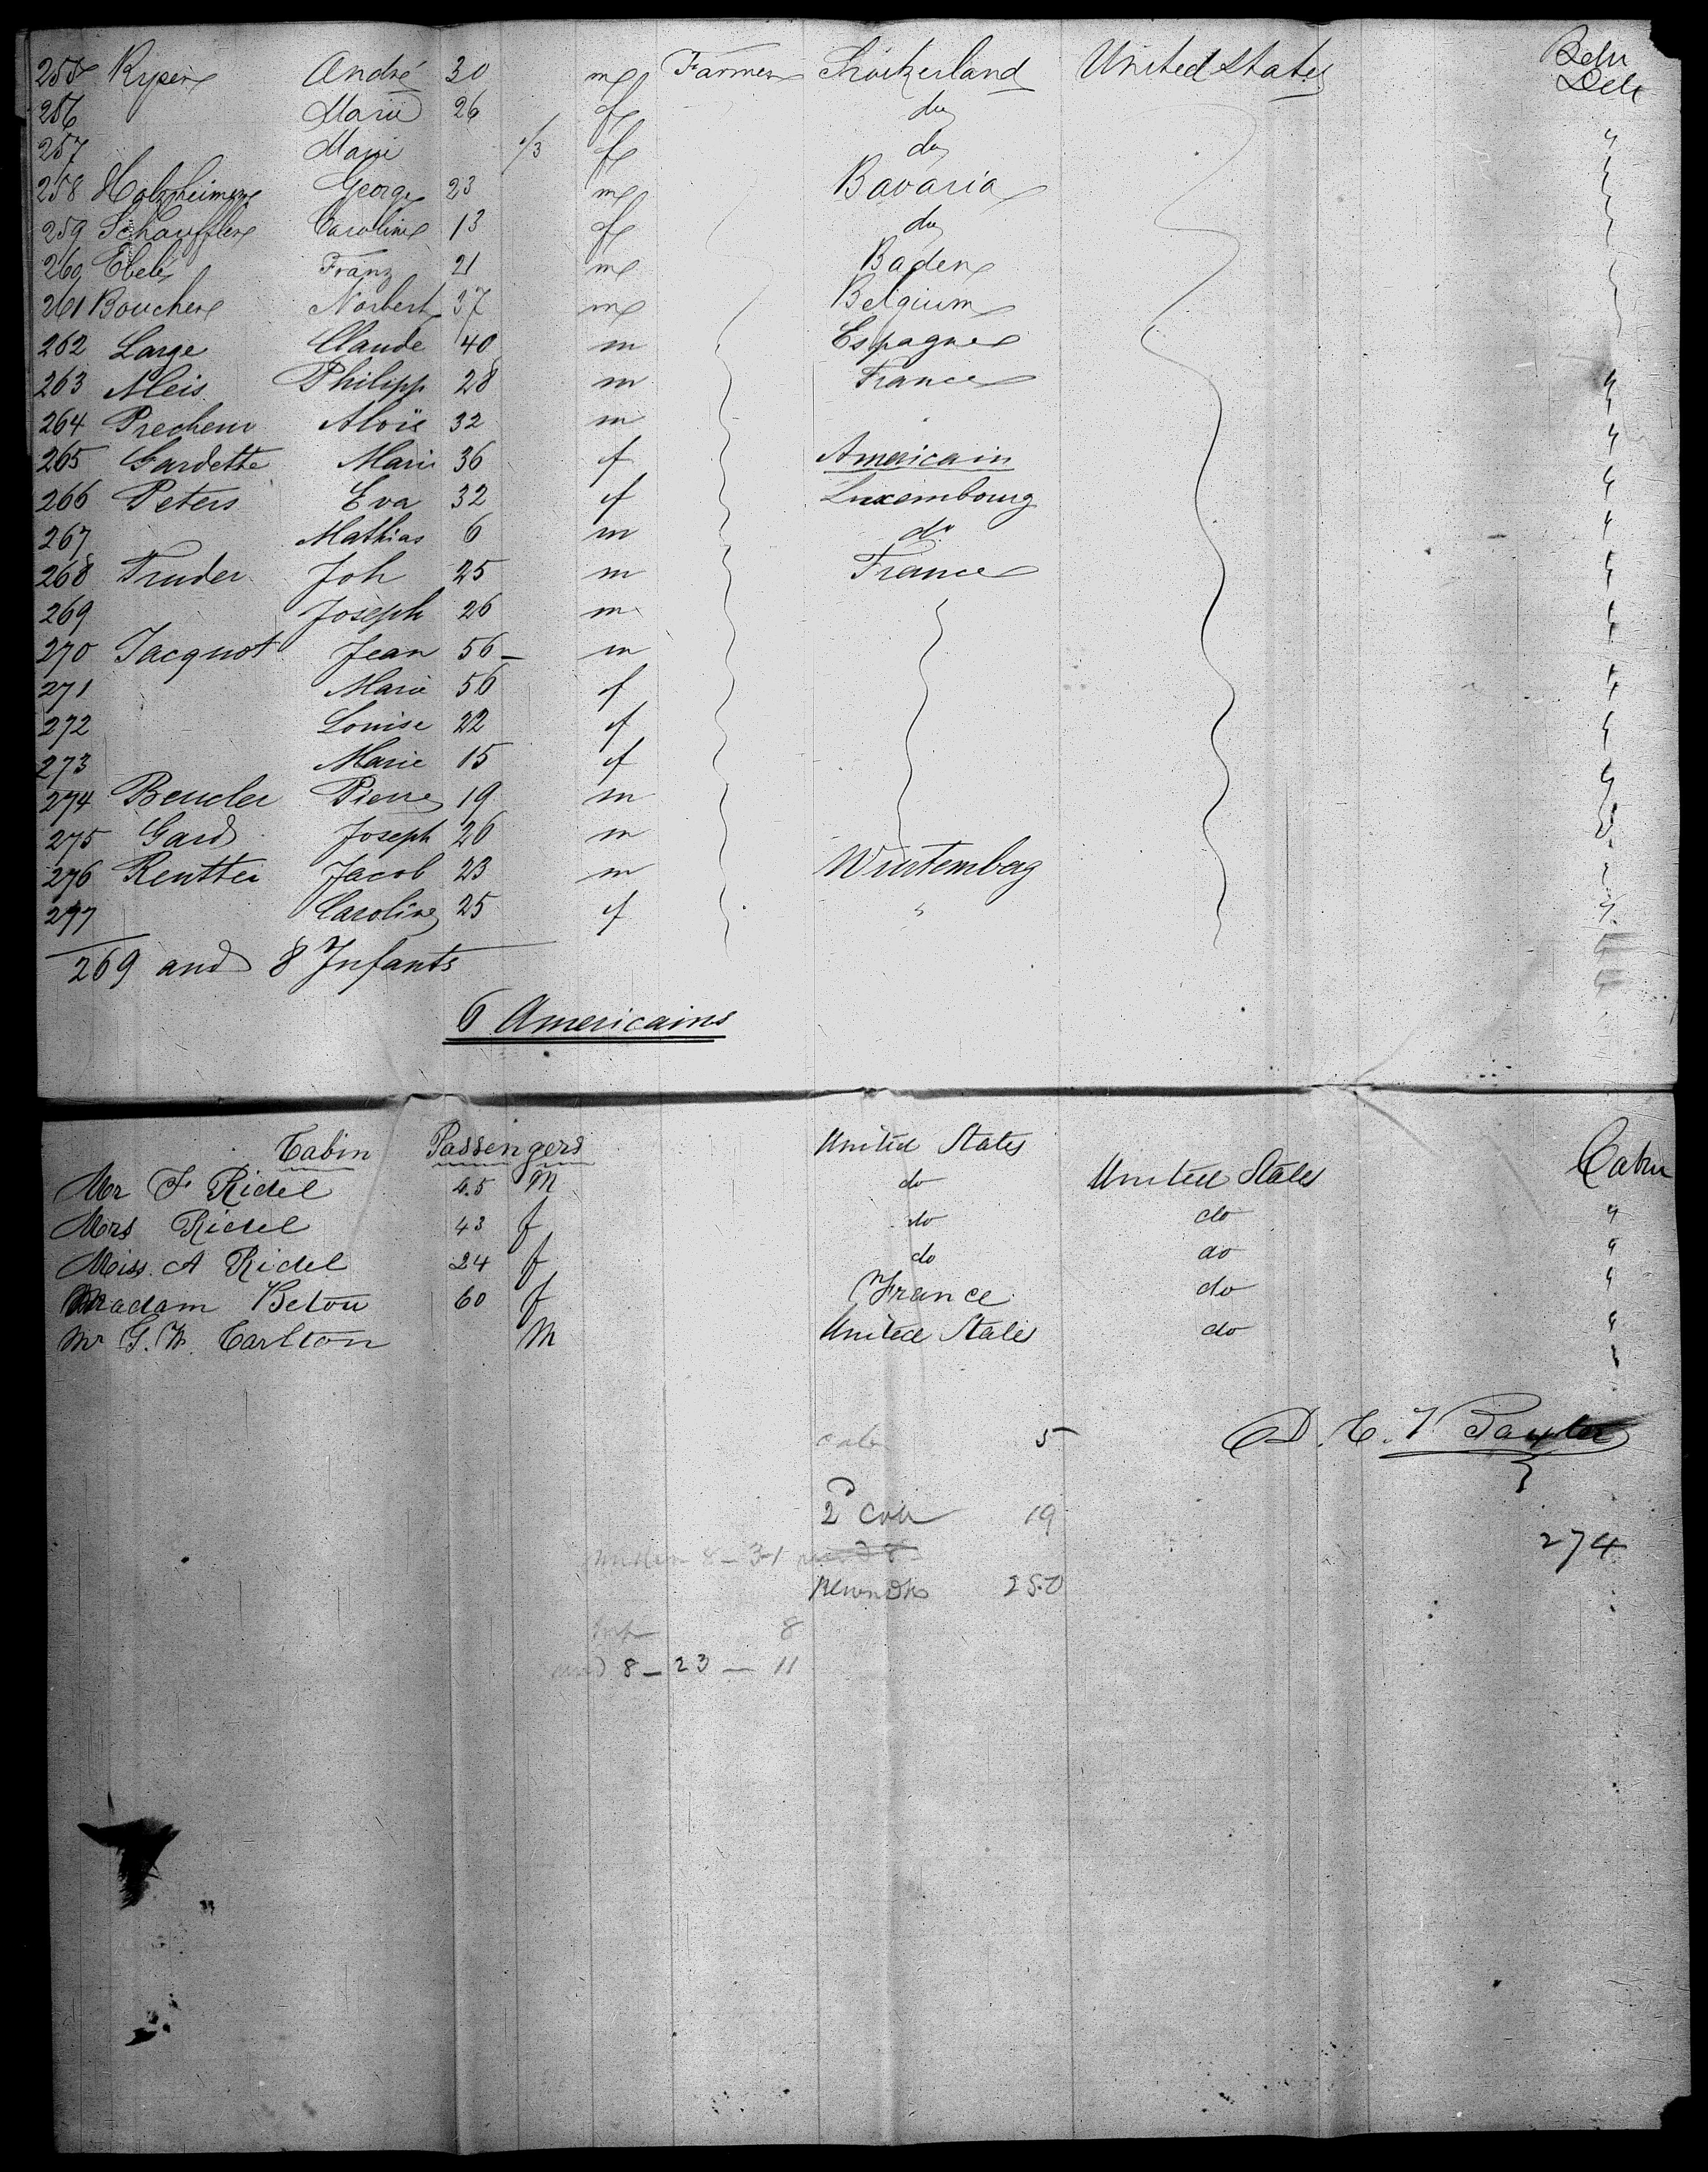 255 Ryser André 30 m Farmer Switzerland United States Betw Deck
256 Marie 26 f do
257 Marie /3 f do "
258 Holzheimer George 23 m Bavaria
259 Schauffler Caroline 13 f do
260 Ebelé Franz 21 m Baden
261 Boucher Norbert 37 m Belgium
262 Large Claude 40 m Espagne
263 Meis Philipp 28 m France "
264 Precheur Aloïs 32 m "
265 Gardette Marie 36 f Americain "
266 Peters Eva 32 f Luxembourg "
267 Mathias 6 m do "
268 Truder Joh 25 m France "
269 Joseph 26 m "
270 Jacquot Jean 56 m "
271 Marie 56 f "
272 Louise 22 f "
273 Marie 15 f "
274 Beucler Pierre 19 m
275 Gard Joseph 26 m
276 Renttei Jacob 23 m Wurtemberg
277 Caroline 25 f " "
269 and 8 Infants
6 Americains
Cabin Passengers United States Cabin
Mr F Ridel 45 M do United States "
Mrs Ridel 43 f do do "
Miss A Ridel 24 f do do "
Madam Betou 60 f France do "
Mr G. W. Carlton M United States do
5
2 Cab 19
274
8 - 31
250
Inf 8
and 8 - 23 - 11